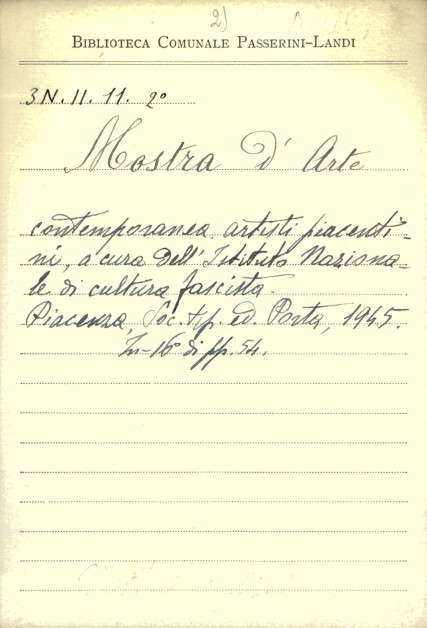 2)
BIBLIOTECA COMUNALE PASSERINI-LANDI
3N. II. 11. 2º
Mostra d' Arte
contemporanea artisti piacenti-
ni, a cura dell' Istituto Naziona-
le di cultura fascista.
Piacenza, Soc. tip. ed. Porta, 1945.
In-16º di pp. 54.